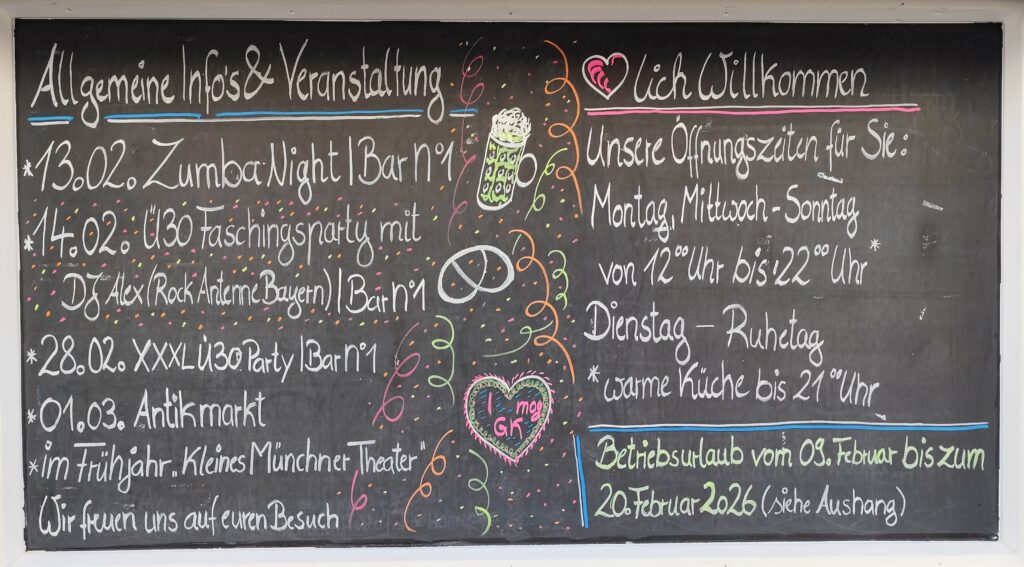 Allgemeine Info's & Veranstaltung
*13.02. Zumba Night | Bar N°1
*14.02. Ü30 Faschingsparty mit
DJ Alex (Rock Antenne Bayern) | Bar n°1
*28.02. XXXL Ü30 Party | Bar n°1
*01.03. Antikmarkt
*im Frühjahr „Kleines Münchner Theater"
Wir freuen uns auf euren Besuch
I mog
GK
lich Willkommen
Unsere Öffnungszeiten für Sie:
Montag, Mittwoch - Sonntag
von 12°° Uhr bis 22°° Uhr*
Dienstag – Ruhetag
*warme Küche bis 21°° Uhr
Betriebsurlaub vom 09. Februar bis zum
20. Februar 2026 (siehe Aushang)